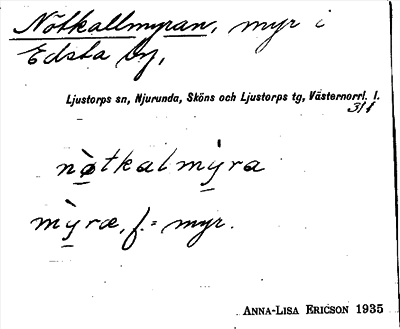 Nötkallmyran, myr i
Edsta by,
Ljustorps sn, Njurunda, Sköns och Ljustorps tg, Västernorrl. l.
311
nø̀tkalmy̌ra
mỳræ, f. = myr.
ANNA-LISA ERICSON 1935